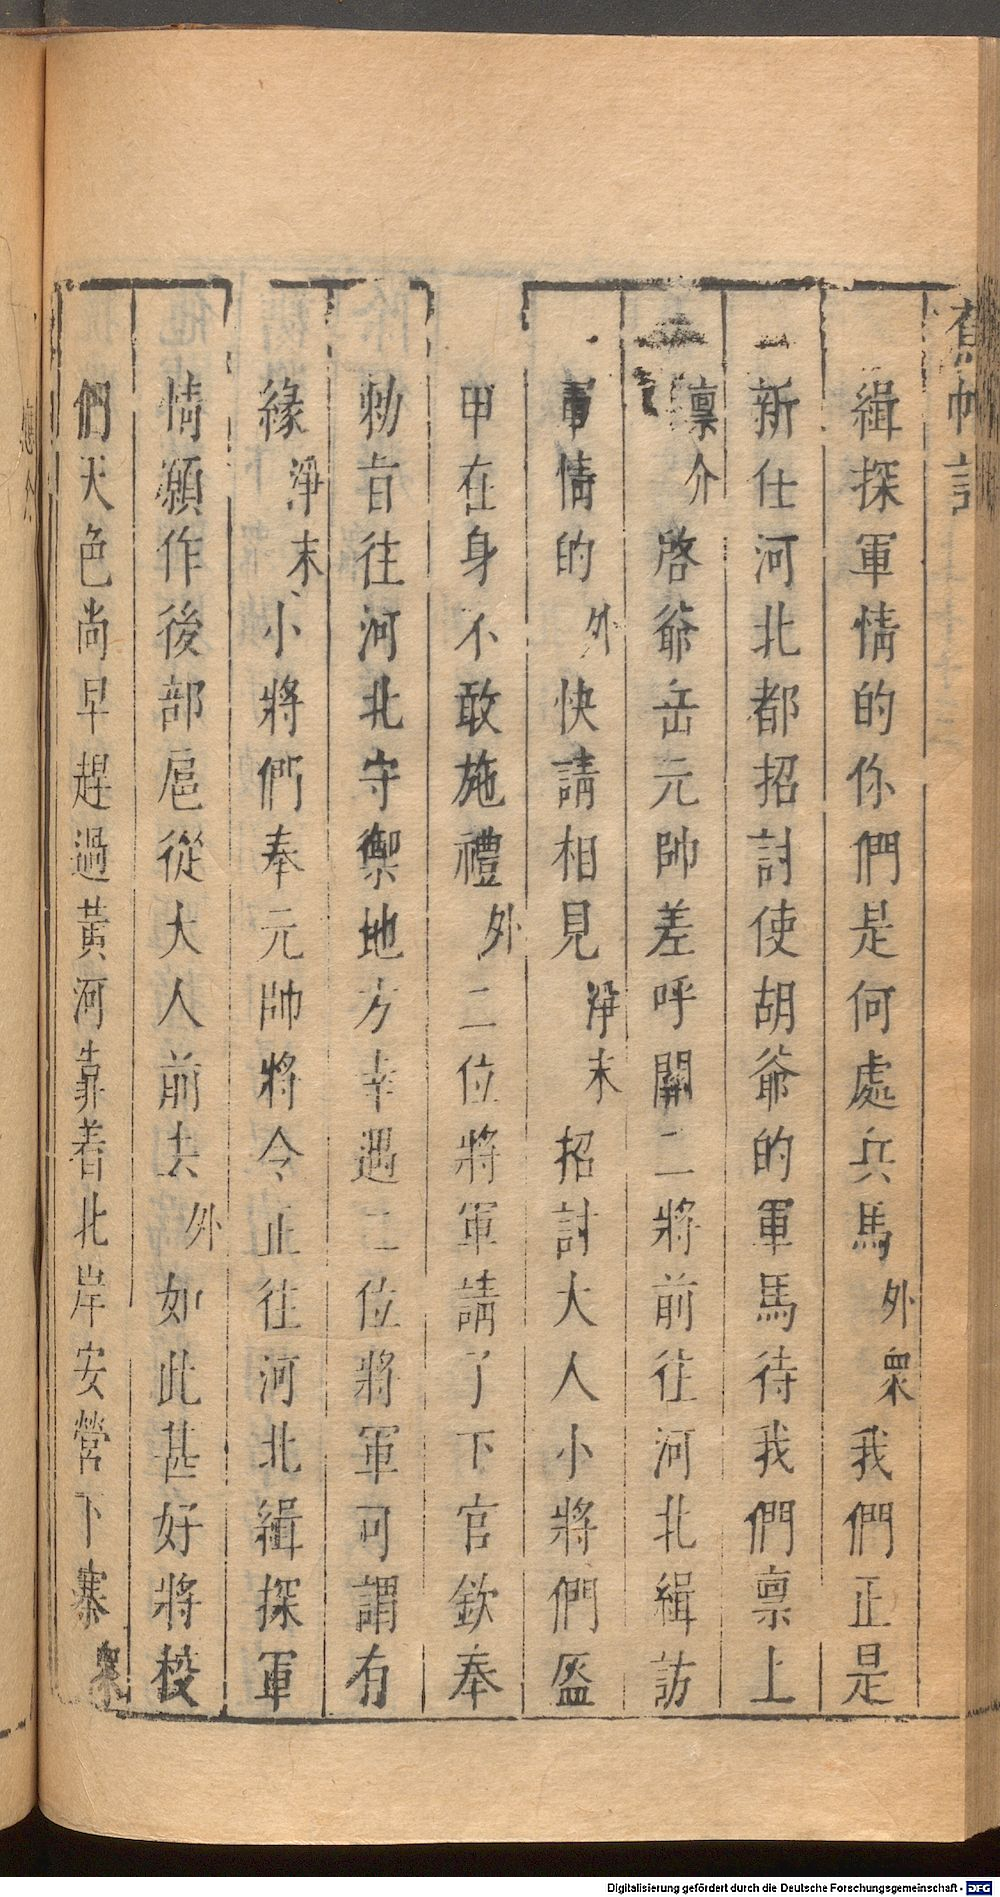 蕉帕記
緝探軍情的你們是何處兵馬外衆我們正是
新仕河北都招討使胡爺的軍馬待我們禀上
禀介啓爺岳元帥差呼關二將前往河北緝訪
軍情的外快請相見淨末招討大人小將們盔
甲在身不敢施禮外二位將軍請了下官欽奉
勅旨往河北守禦地方幸遇二位將軍可謂有
緣淨末小將們奉元帥將令正往河北緝探軍
情願作後部扈從大人前去外如此甚好將校
們天色尚早趕過黃河靠着北岸安營下寨衆
應介
Digitalisierung gefördert durch die Deutsche Forschungsgemeinschaft - DFG